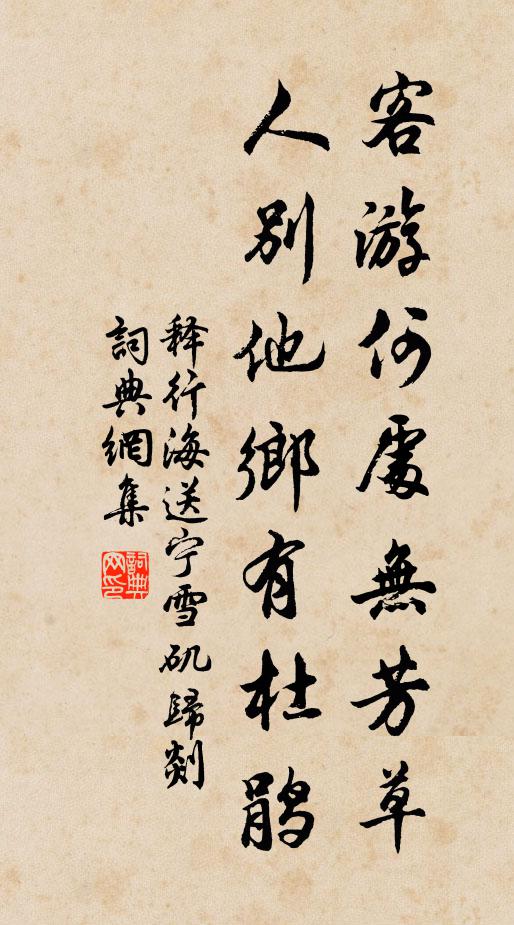 客游何處無芳草
人别他鄉有杜鹃
释行海送宁雪矶歸剡
詞典網集
詞典
网印